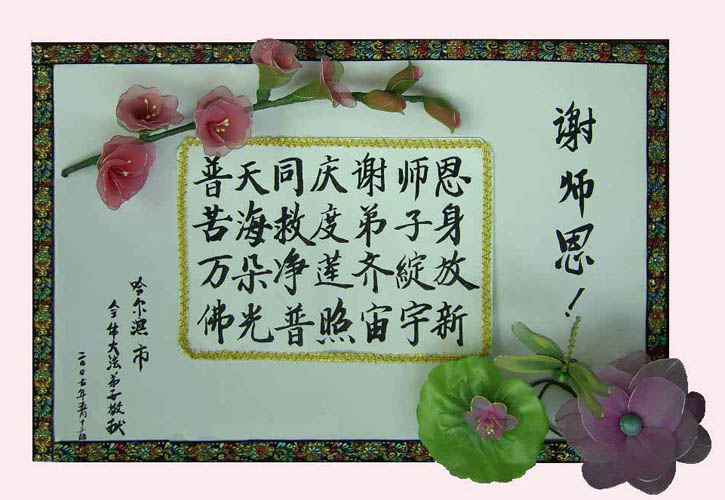 谢师恩！
普天同庆谢师恩
苦海救度弟子身
万朵净莲齐綻放
佛光普照宙宇新
哈尔滨市
全体大法弟子敬献
二〇〇七年五月十三日